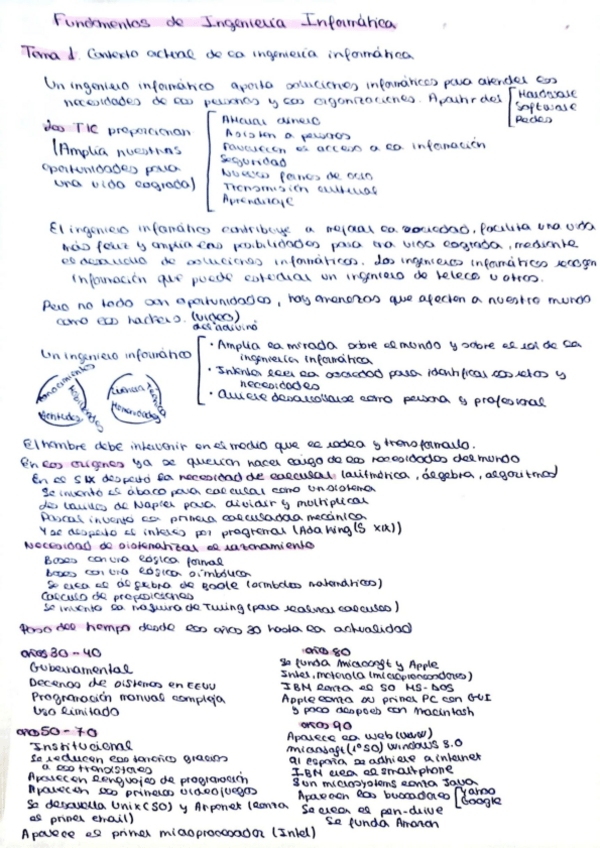 Fundamentos de Ingeniería Informática
Tema 1. Contexto actual de la ingeniería informática
Un ingeniero informático aporta soluciones informáticas para atender las
necesidades de las personas y las organizaciones. A partir del [ Hardware
Software
Redes
Las TIC proporcionan
(Amplia nuestras
oportunidades para
una vida lograda)
Ahorrar dinero
Asisten a personas
Favorecen el acceso a la información
Seguridad
Nuevas formas de ocio
Transmisión cultural
Aprendizaje
El ingeniero informático contribuye a mejorar la sociedad, facilita una vida
más feliz y amplia las posibilidades para una vida lograda, mediante
el desarrollo de soluciones informáticas. Los ingenieros informáticos recogen
información que puede estudiar un ingeniero de teleco u otros.
Pero no todo son oportunidades, hay amenazas que afectan a nuestro mundo
como los hackers. (video)
des adivino
Un ingeniero informático
· Amplia la mirada sobre el mundo y sobre el rol de la
ingeniería informática
· Intenta leer la sociedad para identificar los retos y
necesidades
· Quiere desarrollarse como persona y profesional
Conocimientos
Habilidades
Actitudes
Ciencia
Técnica
Humanidades
El hombre debe intervenir en el medio que le rodea y transformarlo.
En los orígenes ya se querían hacer cargo de las necesidades del mundo
En el S IX despertó la necesidad de calcular (aritmética, álgebra, algoritmos)
Se inventó el ábaco para calcular como un sistema
Las tablillas de Napier para dividir y multiplicar
Pascal inventó la primera calculadora mecánica
Y se despertó el interés por programar (Ada King (S XIX))
Necesidad de sistematizar el razonamiento
Bases con una lógica formal
Bases con una lógica simbólica
Se crea el álgebra de Boole (símbolos matemáticos)
Cálculo de proposiciones
Se inventó la máquina de Turing (para realizar cálculos)
Paso del tiempo desde los años 30 hasta la actualidad
años 30 - 40
Gubernamental
Decenas de sistemas en EEUU
Programación manual compleja
Uso limitado
años 50 - 70
Institucional
Se reducen los tamaños gracias
a los transistores
Aparecen lenguajes de programación
Aparecen los primeros videojuegos
Se desarrolla Unix (SO) y Arpanet (lanza
el primer email)
Aparece el primer microprocesador (Intel)
años 80
Se funda Microsoft y Apple
Intel, Motorola (microprocesadores)
IBM lanza el SO MS-DOS
Apple lanza su primer PC con GUI
y poco después con Macintosh
años 90
Aparece la web (www)
Microsoft (1º SO) Windows 3.0
91 españa se adhiere a internet
IBM crea el smartphone
Sun microsystems lanza Java
Aparecen los buscadores [ Yahoo
Google
Se crea el pen-drive
Se funda Amazon